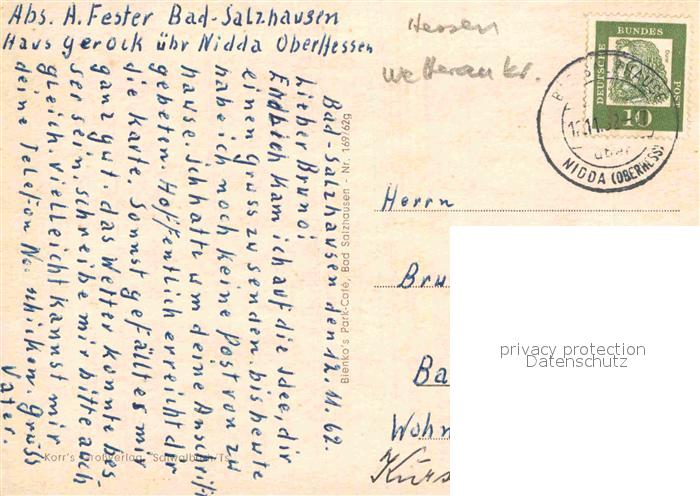 Abs. A. Fester Bad-Salzhausen
Haus Gerock übr Nidda Oberhessen
Hessen
Wetterau kr.
DEUTSCHE BUNDES POST
10
12.11.62
über
NIDDA (OBERHESS)
Bad-Salzhausen den 12.11.62.
Lieber Bruno!
Endlich kam ich auf die Idee, dir
einen Gruss zu senden. bis heute
habe ich noch keine Post von zu
hause. Ich hatte um deine Anschrift
gebeten. Hoffentlich erreicht dir
die Karte. Sonst gefällt es mir
ganz gut. das Wetter könnte bes-
ser sein. schreibe mir bitte auch
gleich. vielleicht kannst mir
deine Telefon No schicken. Gruss
Vater.
Bienko's Park-Café, Bad Salzhausen - Nr. 169/62g
Korr's Großverlag, Bad Salwalbach/Ts
Herrn
Bru
Ba
Wohn
Kurs
privacy protection
Datenschutz